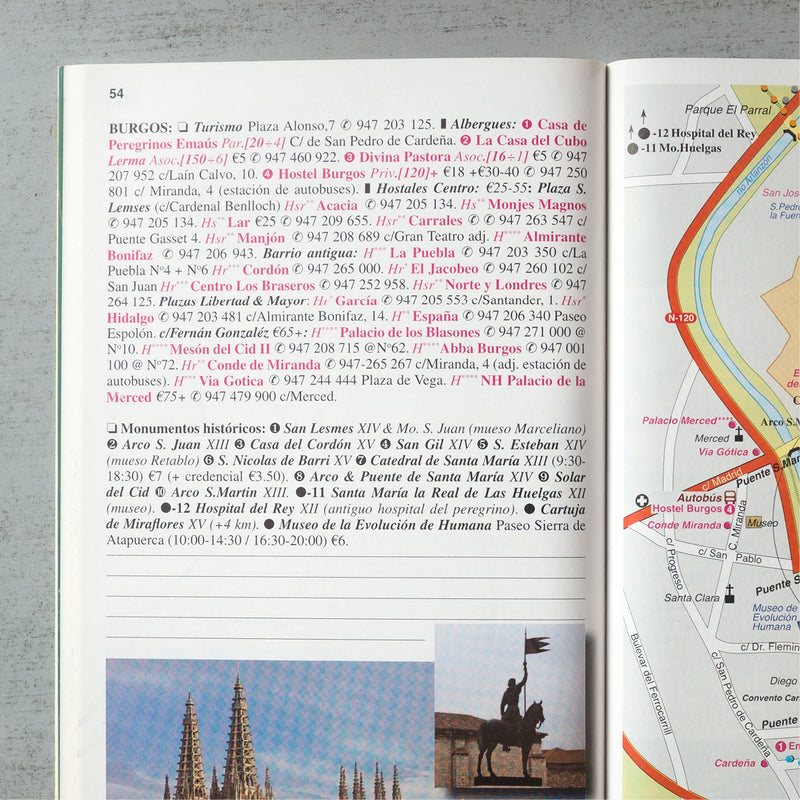 54
BURGOS: ❏ Turismo Plaza Alonso,7 ✆ 947 203 125. ▮ Albergues: ❶ Casa de
Peregrinos Emaús Par.[20÷4] C/ de San Pedro de Cardeña. ❷ La Casa del Cubo
Lerma Asoc.[150÷6] €5 ✆ 947 460 922. ❸ Divina Pastora Asoc.[16÷1] €5 ✆ 947
207 952 c/Laín Calvo, 10. ❹ Hostel Burgos Priv.[120]+ €18 +€30-40 ✆ 947 250
801 c/ Miranda, 4 (estación de autobuses). ▮ Hostales Centro: €25-55: Plaza S.
Lemses (c/Cardenal Benlloch) Hsr** Acacia ✆ 947 205 134. Hs** Monjes Magnos
✆ 947 205 134. Hs** Lar €25 ✆ 947 209 655. Hsr** Carrales ✆ ✆ 947 263 547 c/
Puente Gasset 4. Hsr** Manjón ✆ 947 208 689 c/Gran Teatro adj. H**** Almirante
Bonifaz ✆ 947 206 943. Barrio antigua: H*** La Puebla ✆ 947 203 350 c/La
Puebla Nº4 + Nº6 Hr*** Cordón ✆ 947 265 000. Hr* El Jacobeo ✆ 947 260 102 c/
San Juan Hr*** Centro Los Braseros ✆ 947 252 958. Hsr** Norte y Londres ✆ 947
264 125. Plazas Libertad & Mayor: Hr* García ✆ 947 205 553 c/Santander, 1. Hsr*
Hidalgo ✆ 947 203 481 c/Almirante Bonifaz, 14. H** España ✆ 947 206 340 Paseo
Espolón. c/Fernán Gonzaléz €65+: H**** Palacio de los Blasones ✆ 947 271 000 @
Nº10. H**** Mesón del Cid II ✆ 947 208 715 @Nº62. H**** Abba Burgos ✆ 947 001
100 @ Nº72. Hr** Conde de Miranda ✆ 947-265 267 c/Miranda, 4 (adj. estación de
autobuses). H*** Via Gotica ✆ 947 244 444 Plaza de Vega. H**** NH Palacio de la
Merced €75+ ✆ 947 479 900 c/Merced.
❏ Monumentos históricos: ❶ San Lesmes XIV & Mo. S. Juan (mueso Marceliano)
❷ Arco S. Juan XIII ❸ Casa del Cordón XV ❹ San Gil XIV ❺ S. Esteban XIV
(mueso Retablo) ❻ S. Nicolas de Barri XV ❼ Catedral de Santa María XIII (9:30-
18:30) €7 (+ credencial €3.50). ❽ Arco & Puente de Santa María XIV ❾ Solar
del Cid ❿ Arco S.Martin XIII. ●-11 Santa María la Real de Las Huelgas XII
(museo). ●-12 Hospital del Rey XII (antiguo hospital del peregrino). ● Cartuja
de Miraflores XV (+4 km). ● Museo de la Evolución de Humana Paseo Sierra de
Atapuerca (10:00-14:30 / 16:30-20:00) €6.
Parque El Parral
●-12 Hospital del Rey
●-11 Mo.Huelgas
río Arlanzón
San José
S.Pedro
la Fuen
N-120
E
de
C
Arco S.M
Palacio Merced****
Merced
Via Gótica
c/ Madrid
Puente S.Mar
Autobús
Hostel Burgos ❹
Conde Miranda
Museo
C. Miranda
c/ San Pablo
c/ Progreso
Santa Clara
Puente S
Museo de
Evolución
Humana
c/ Dr. Flemin
Bulevar del Ferrocarril
c/ San Pedro de Cardeña
Diego
Convento Car
Puente
❶ En
Cardeña